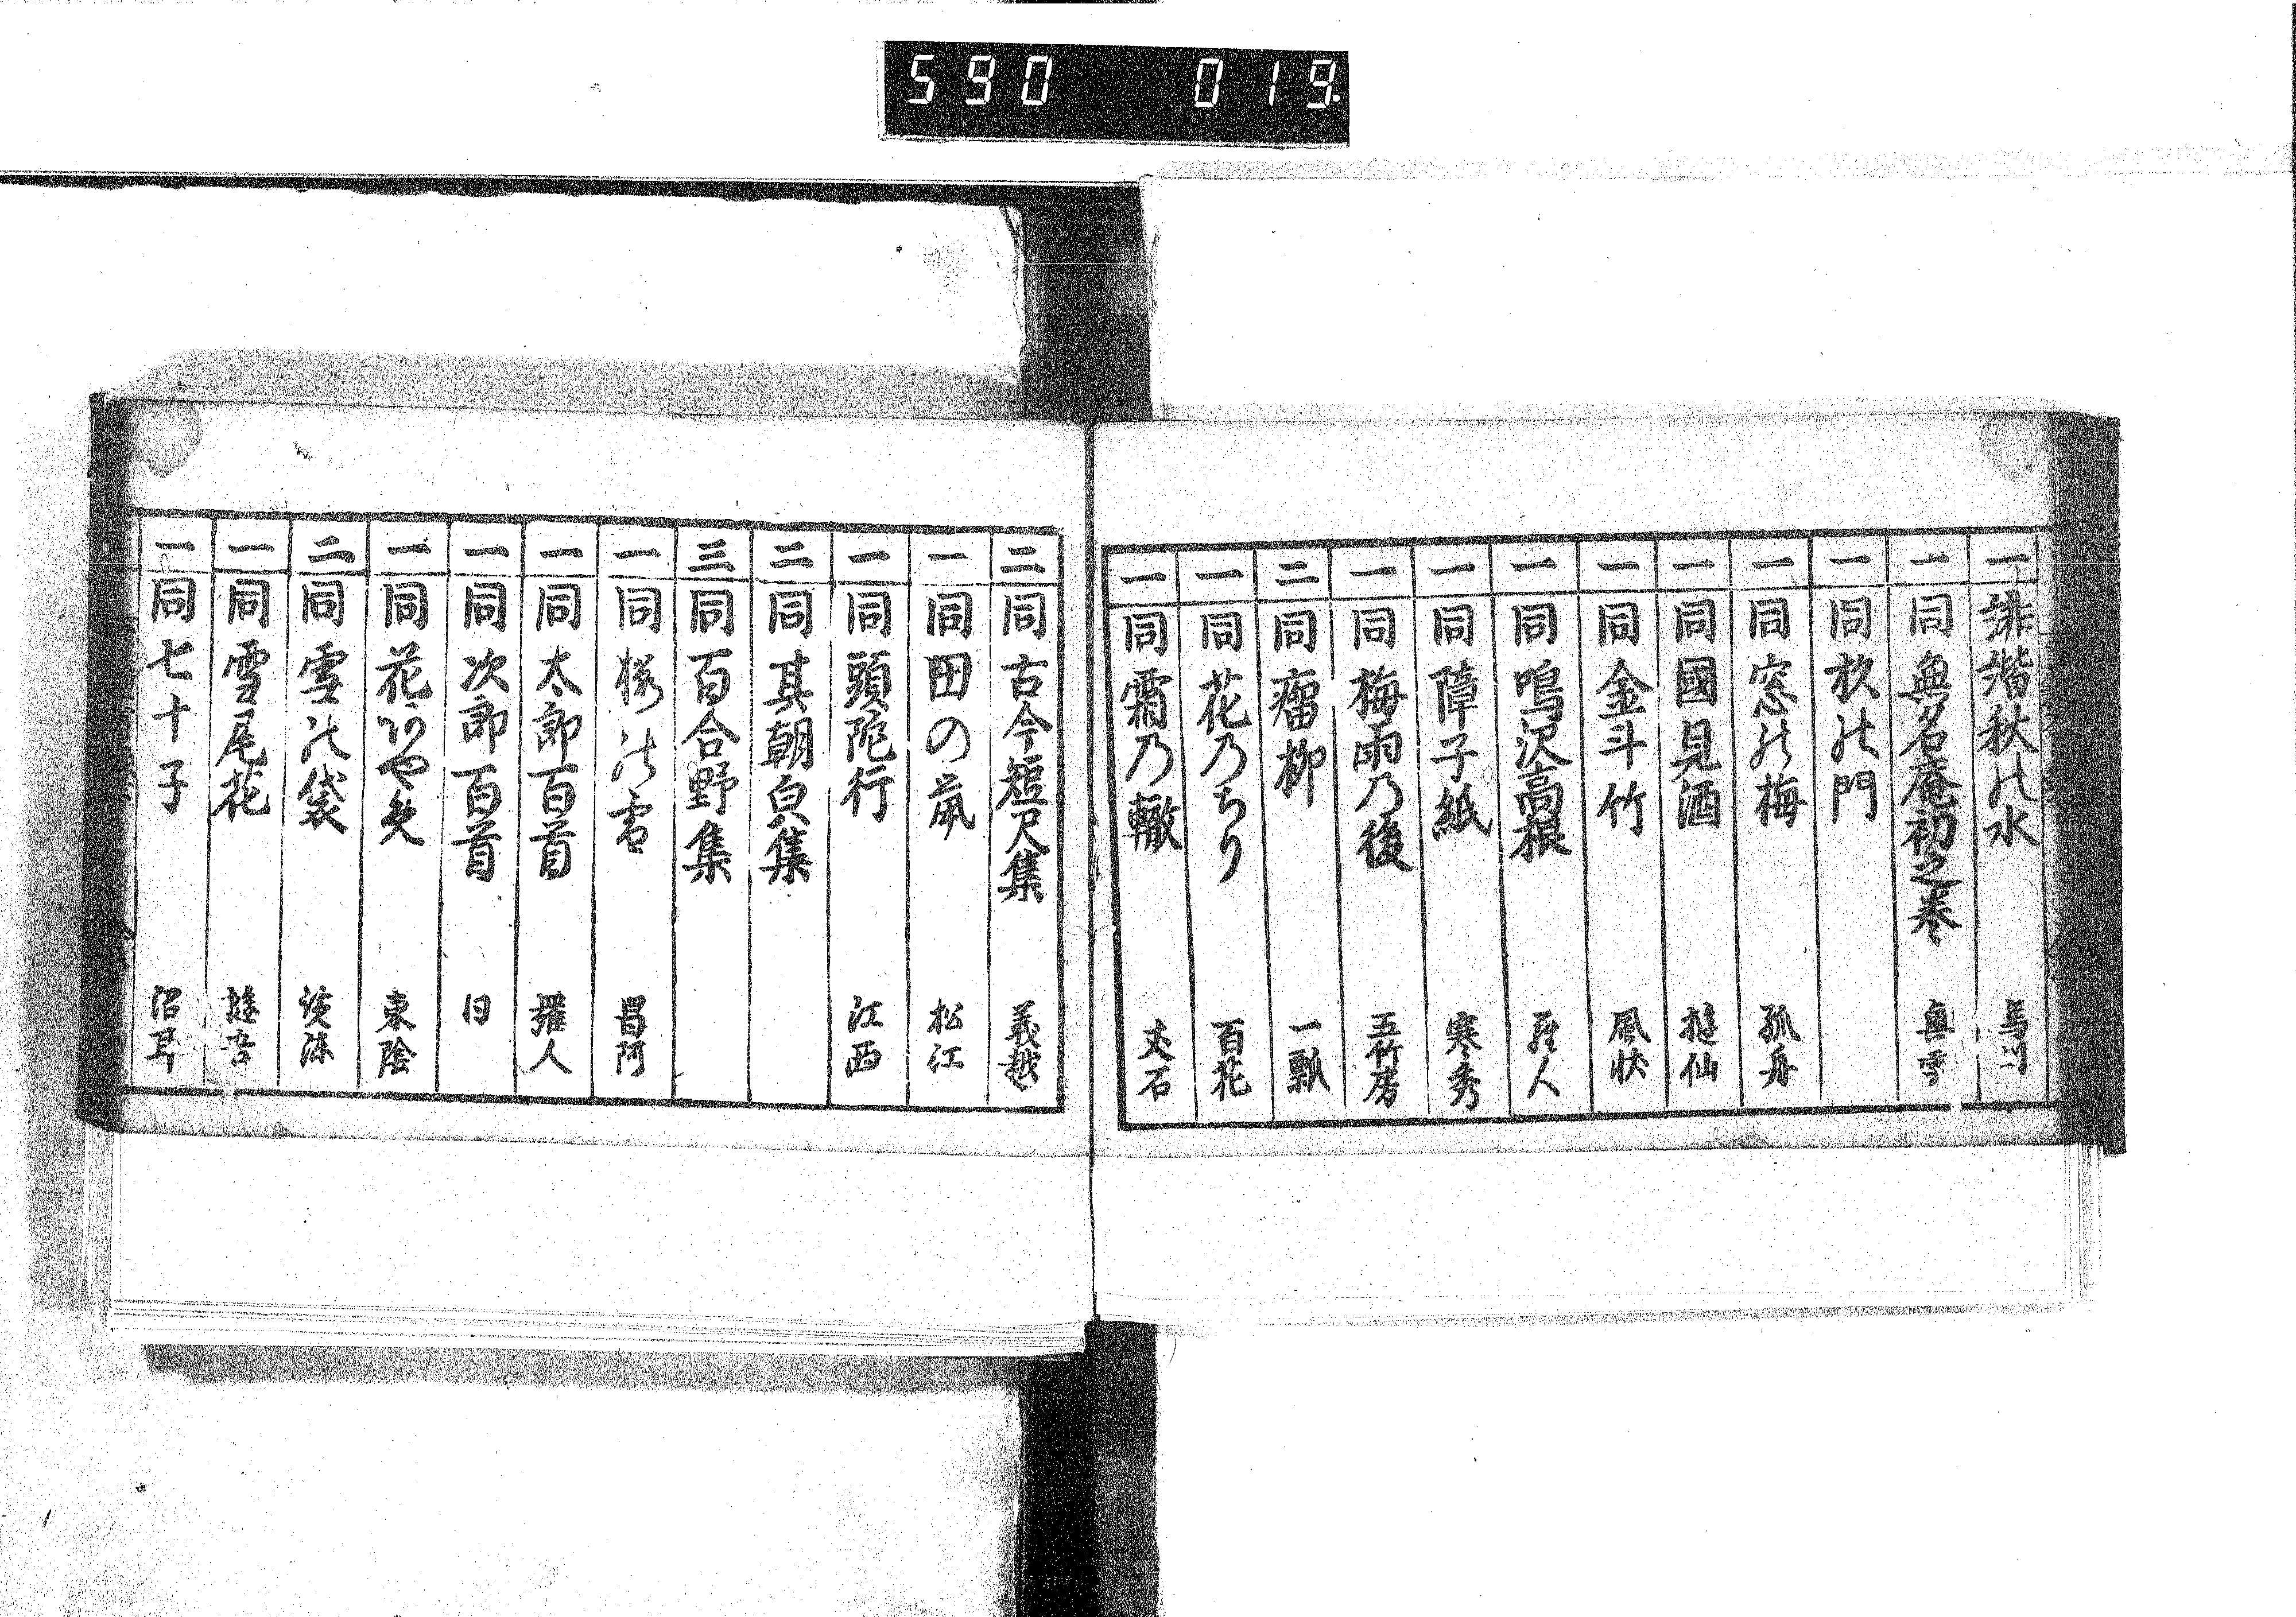 590 019
一 誹諧秋の水 馬川
一 同 無名庵初之巻
一 同 杉の門
一 同 窓の梅 孤舟
一 同 國見酒 挺仙
一 同 金斗竹 風状
一 同 鳴沢高根
一 同 障子紙 寒秀
一 同 梅雨乃後 五竹房
二 同 瘤柳 一瓢
一 同 花乃ちり 百花
一 同 霜乃轍 丈石
二 同 古今短尺集 義越
一 同 田の 松江
一 同 頭陀行 江西
二 同 其朝皃集
三 同 百合野集
一 同 桜の雲 昌阿
一 同 太郎百首 羅人
一 同 次郎百首 同
一 同 花あやめ 東陰
二 同 雪の袋
一 同 雪尾花
一 同 七十子 沼耳